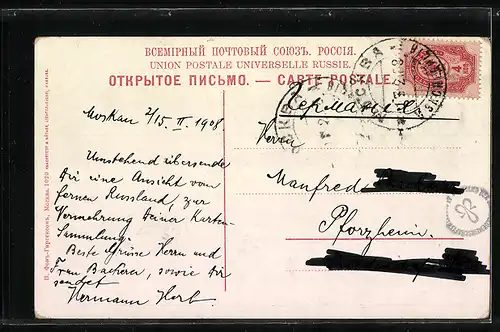 ВСЕМІРНЫЙ ПОЧТОВЫЙ СОЮЗЪ. РОССІЯ.
UNION POSTALE UNIVERSELLE RUSSIE.
ОТКРЫТОЕ ПИСЬМО. — CARTE POSTALE.
МОСКВА
Moskau 2/15. II. 1908
Umstehend übersende
Dir eine Ansicht vom
fernen Russland, zur
Vermehrung Deiner Karten-
Sammlung.
Beste Grüsse Herrn und
Frau, sowie Dir
sendet
Hermann
Германія
Herrn
Manfred
Pforzheim.